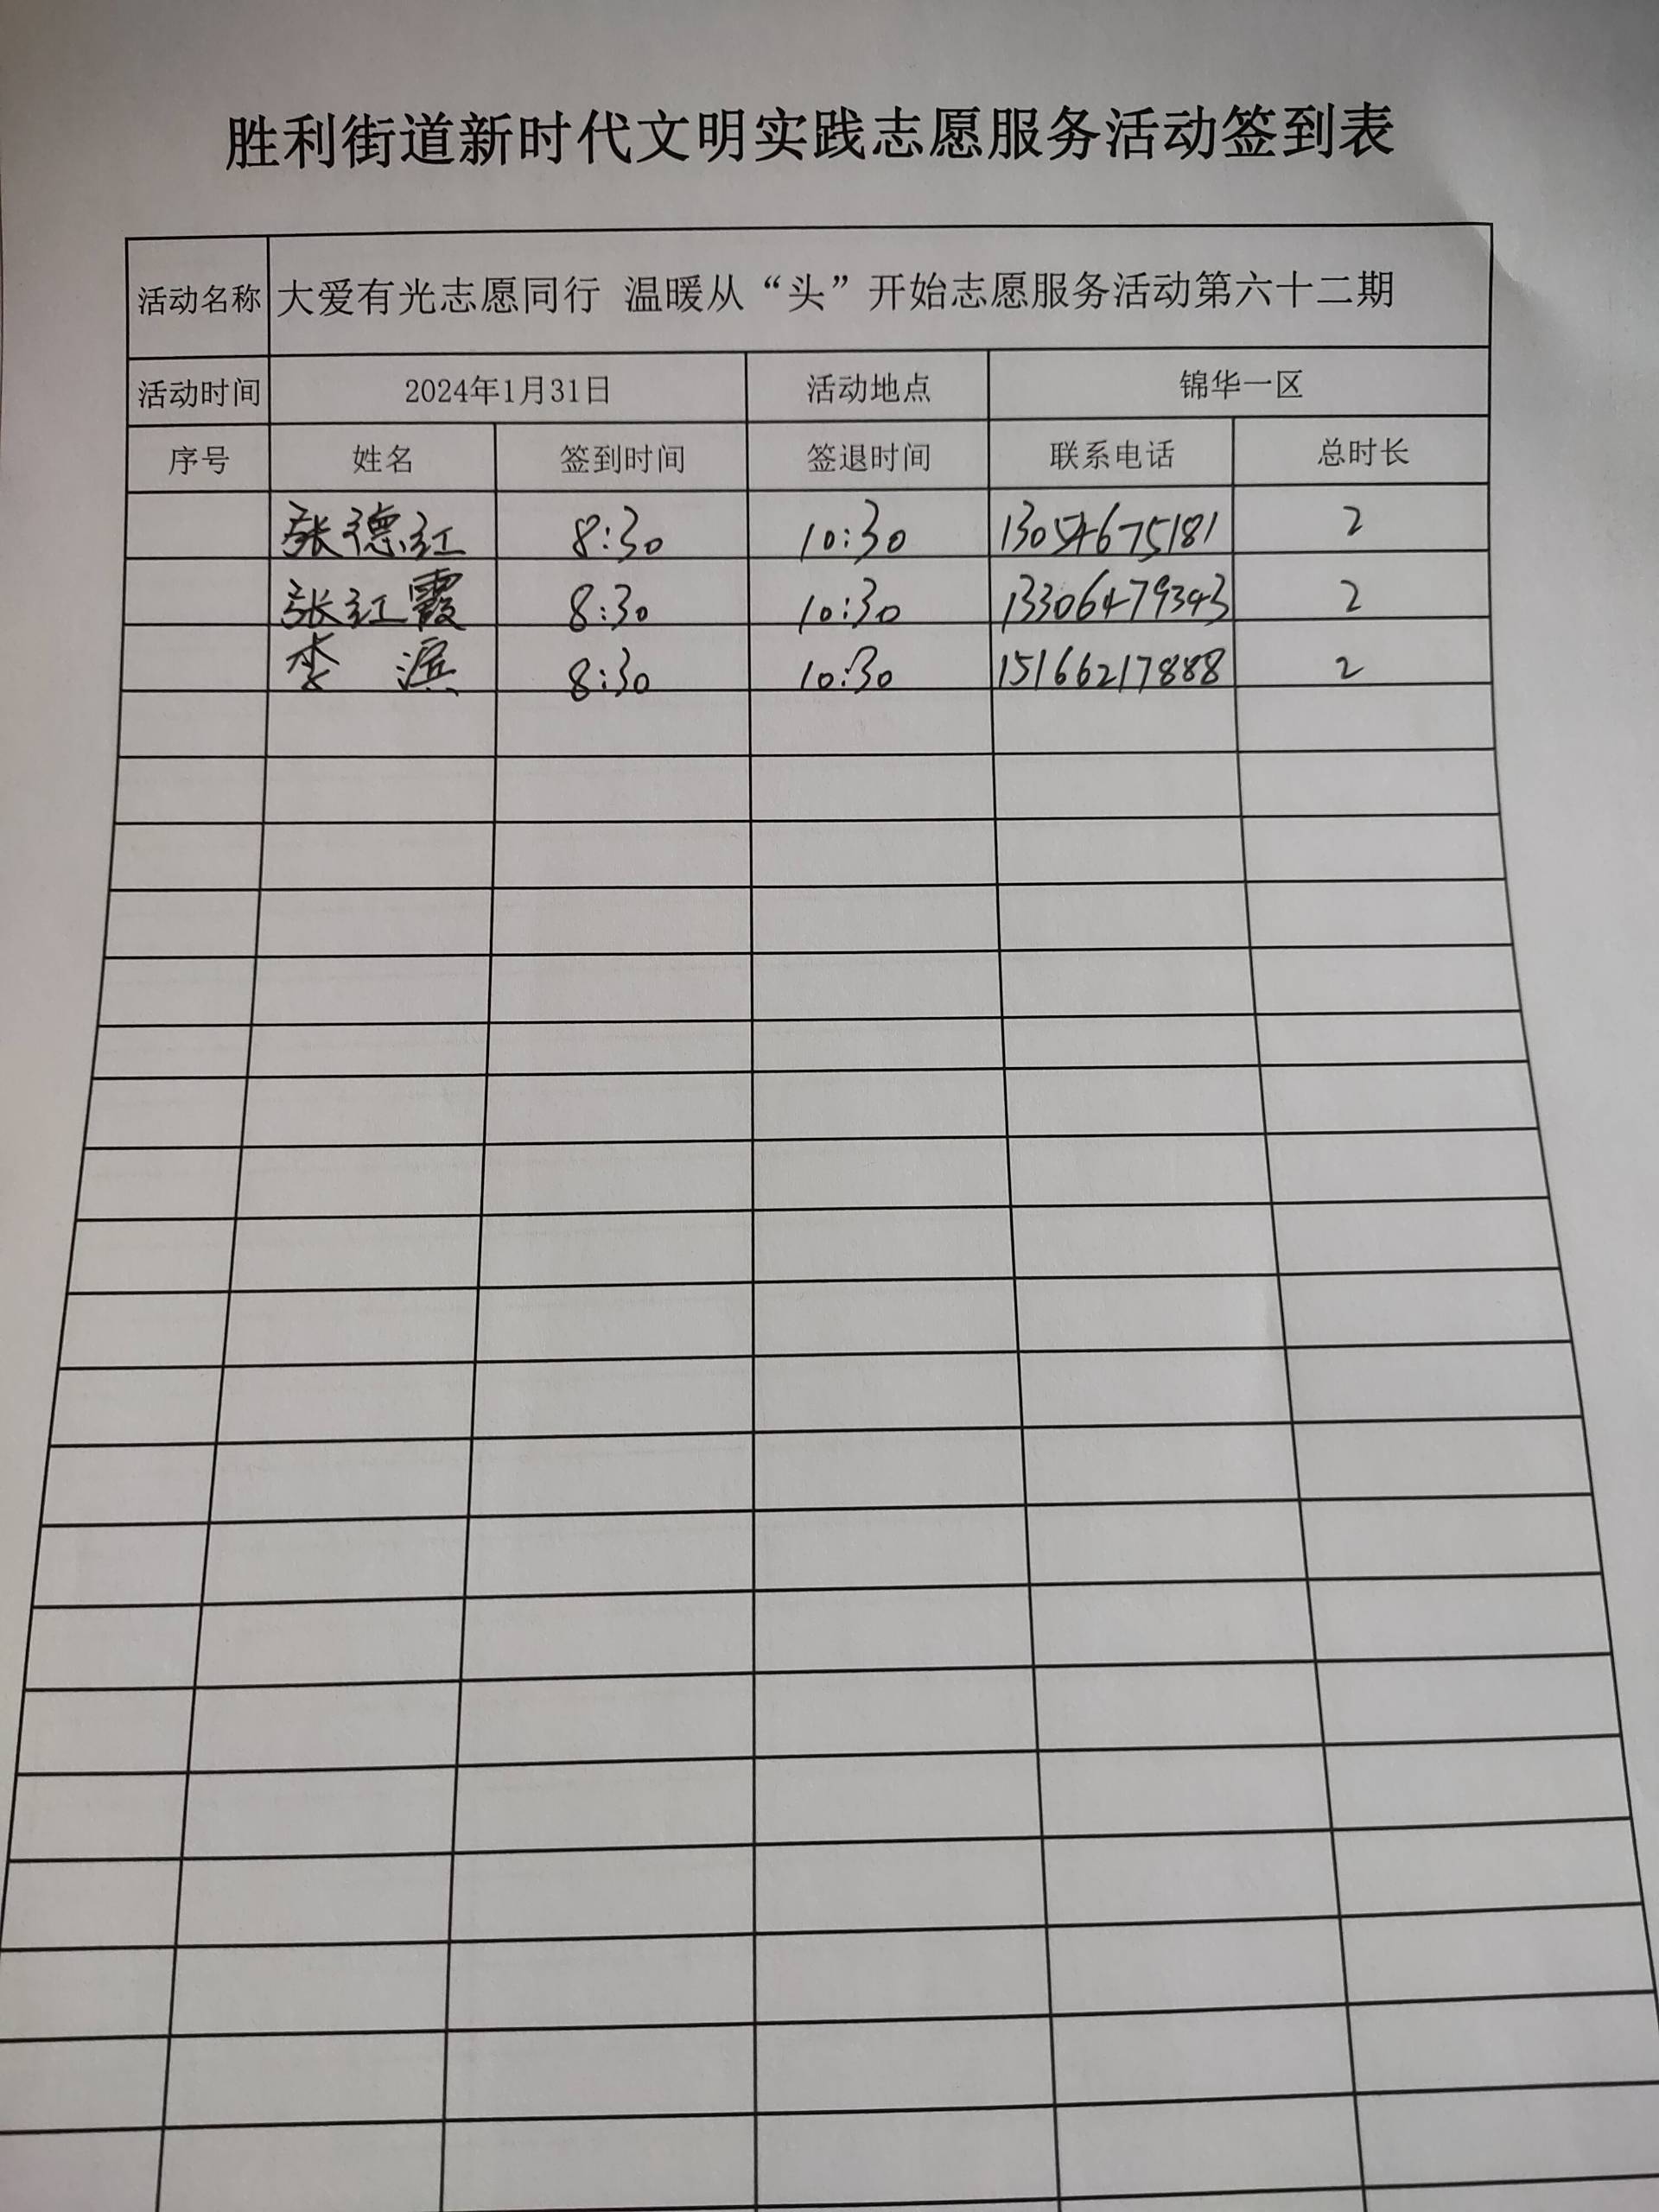 胜利街道新时代文明实践志愿服务活动签到表
活动名称 大爱有光志愿同行 温暖从“头”开始志愿服务活动第六十二期
活动时间 2024年1月31日 活动地点 锦华一区
序号 姓名 签到时间 签退时间 联系电话 总时长
张德红 8:30 10:30 13054675181 2
张红霞 8:30 10:30 13306479343 2
李滨 8:30 10:30 15166217888 2